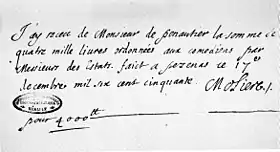 J'ay receu de Monsieur de penautier la somme de
quatre mille liures ordonnées aux comediens par
Messieurs des Estats. faict a pezenas ce 17e
decembre mil six cent cinquante. Moliere.
pour 4000tt